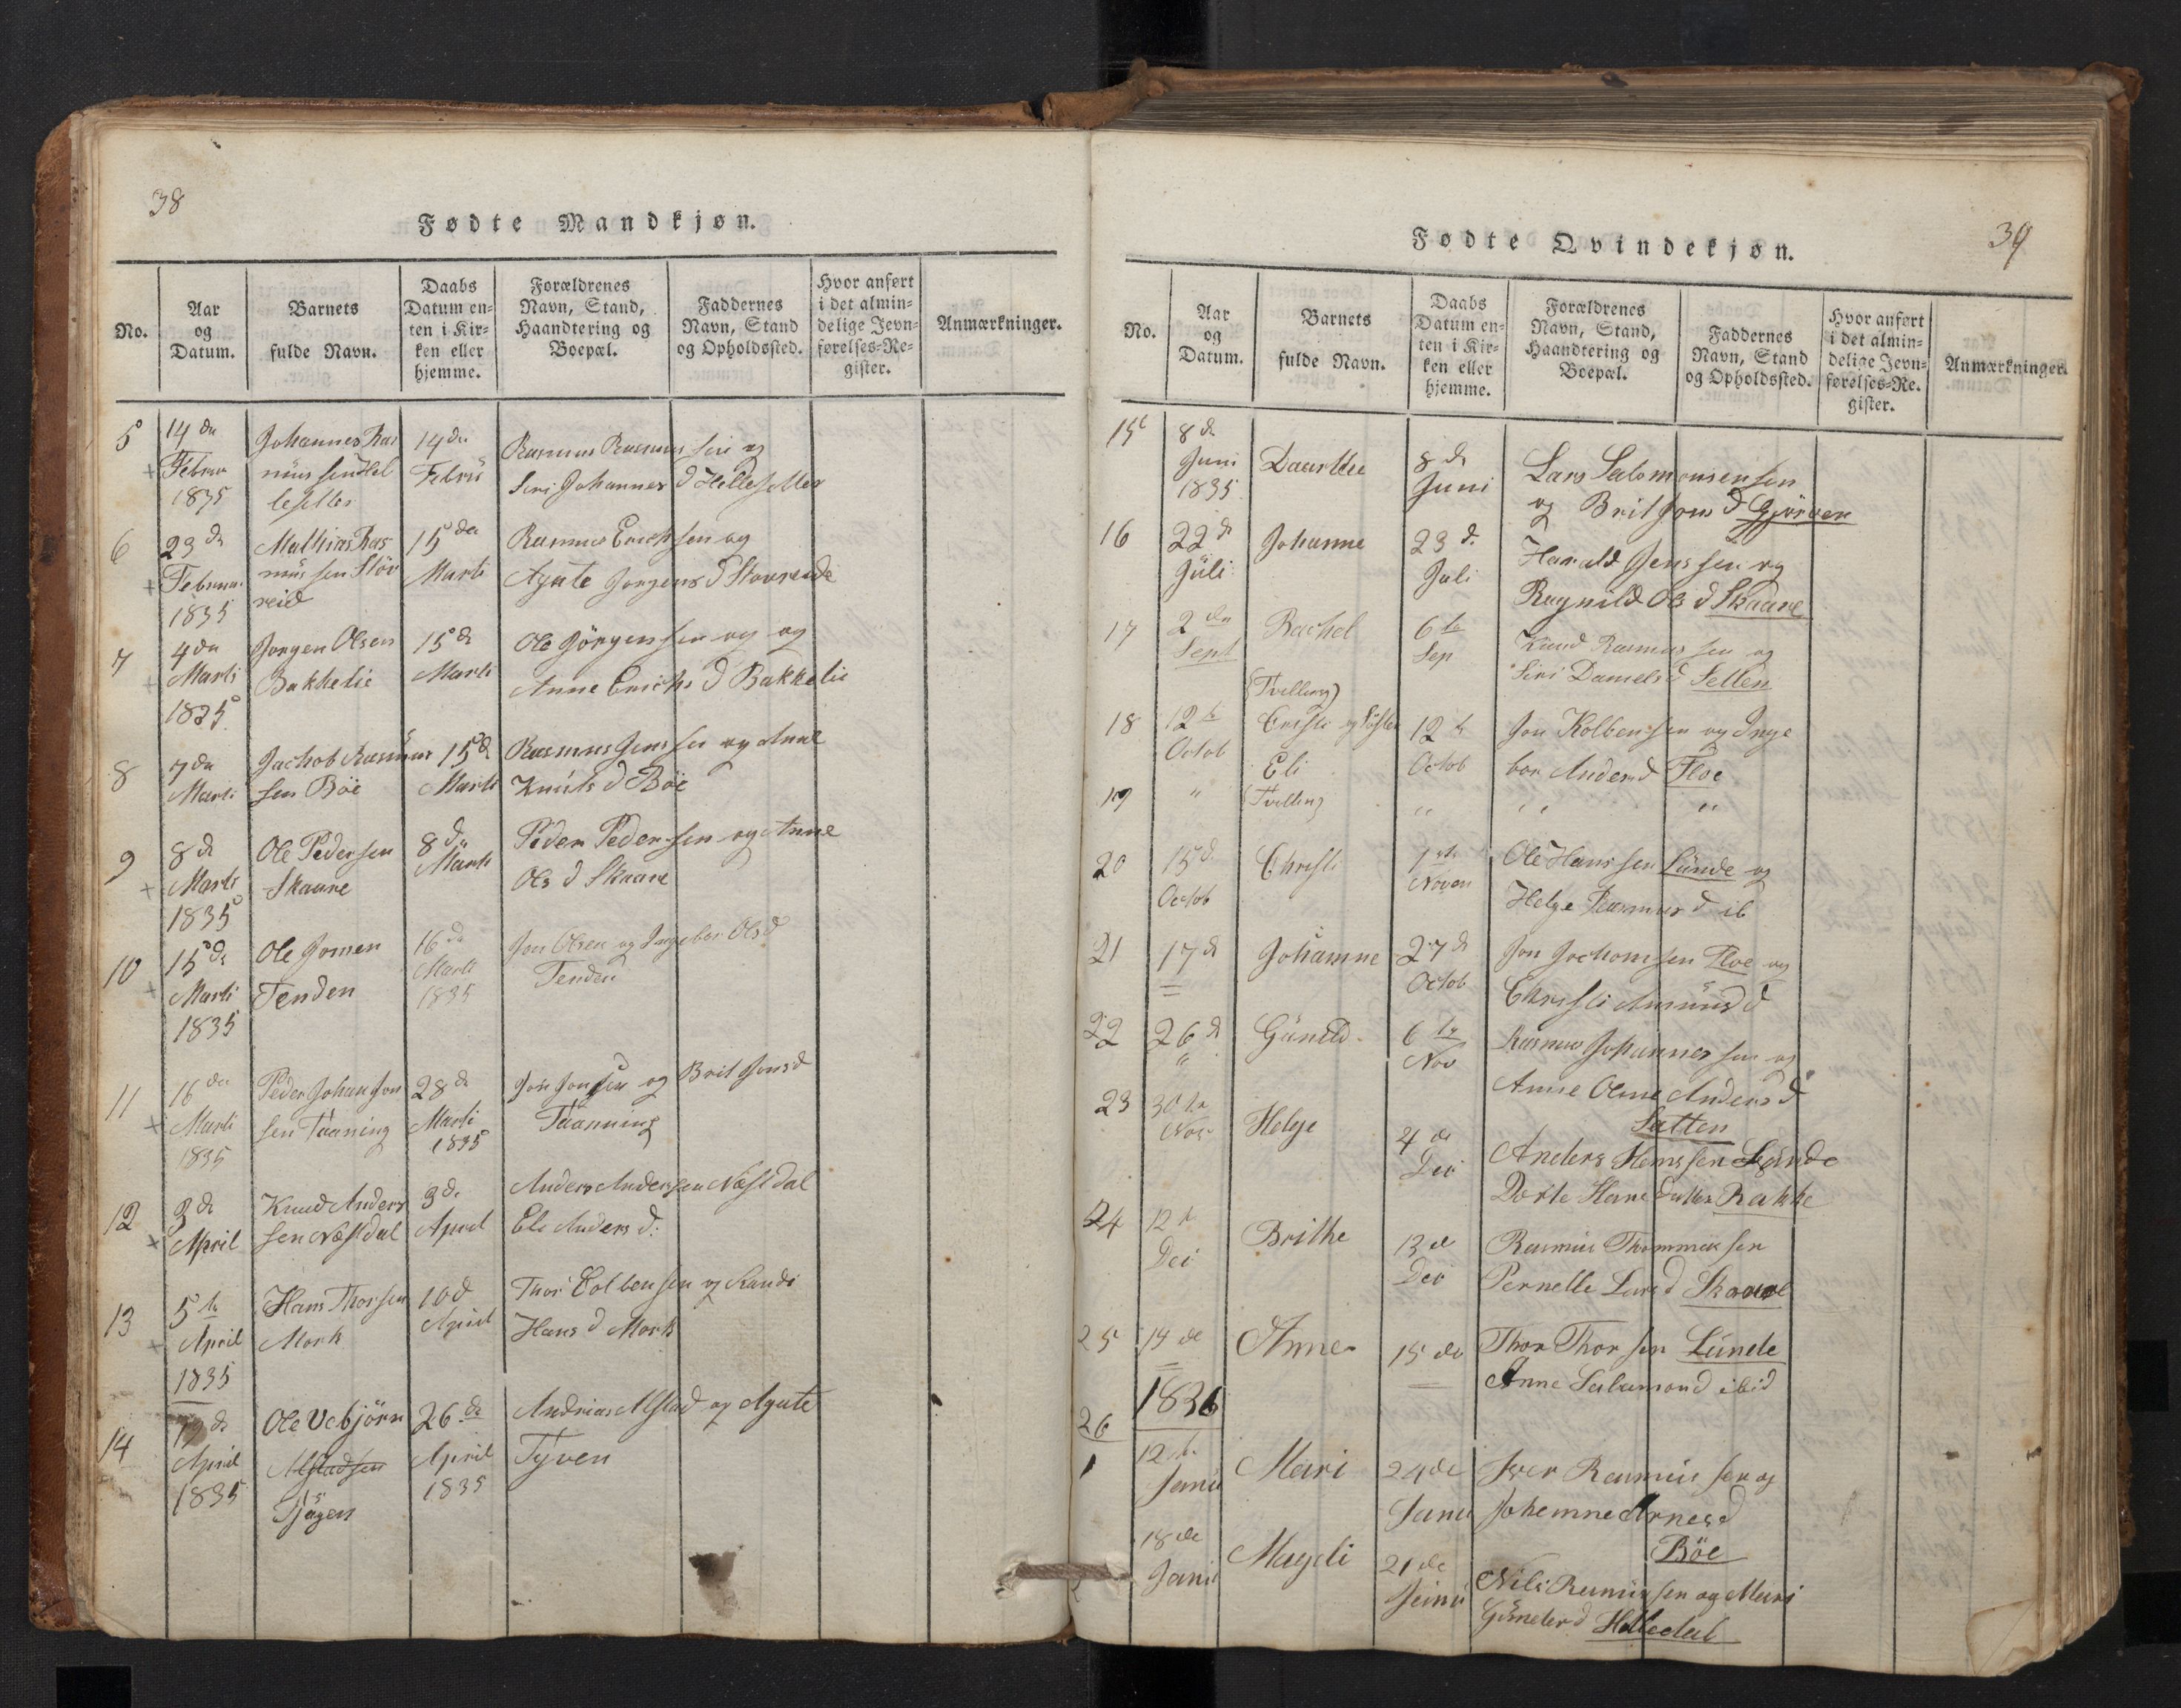 38
Fødte Mandkjøn.
No.
Aar
og
Datum.
Barnets
fulde Navn.
Daabs
Datum en-
ten i Kir-
ken eller
hjemme.
Forældrenes
Navn, Stand,
Haandtering og
Boepæl.
Faddernes
Navn, Stand
og Opholdssted.
Hvor anført
i det almin-
delige Jevn-
førelses-Re-
gister.
Anmærkninger.
5
14 da
Februar
1835
Johannes Ras
mus sen Hel
lesetter
14 da
Febru
Rasmus Rasmus sen og
Siri Johannes d Hellesetter
6
23 da
Februar
1835
Mathias Ras
mus sen Stöv
reid
15 da
Marti
Rasmus Erichsen og
Agate Jorgens d Stovreide
7
4 da
Marti
1835
Jorgen Olsen
Bakkelie
15 d
Marti
Ole Jörgensen og og
Anne Erichs d Bakkelie
8
7 da
Marti
Jachob Rasmus
sen Böe
15 d
Marti
Rasmus Jens sen og Anne
Knuts d Böe
9
8 d
Marti
1835
Ole Pedersen
Skaare
8 d
Marti
Peder Pedersen og Anne
Ols d Skaare
10
15 d
Marti
1835
Ole Jonsen
Tenden
16 d
Marti
1835
Jon Olsen og Ingebor Ols d
Tenden
11
16 da
Marti
1835
Peder Johan Jon
sen Taaning
28 d
Marti
1835
Jon Jonsen og Brit Jons d
Taanning
12
3 d
April
Knud Anders
sen Næstdal
3 d
April
Anders Andersen Næstdal
Eli Anders d:
13
5 te
April
1835
Hans Thorsen
Mork
10 d
April
Thor Colbensen og Randi
Hans d Mork
14
April
1835
Ole Vebjörn
Alstadsen
26 da
April
1835
Andrias Alstad og Agate
Tyven
39
Fødte Qvindekjøn.
No.
Aar
og
Datum.
Barnets
fulde Navn.
Daabs
Datum en-
ten i Kir-
ken eller
hjemme.
Forældrenes
Navn, Stand,
Haandtering og
Boepæl.
Faddernes
Navn, Stand
og Opholdssted.
Hvor anført
i det almin-
delige Jevn-
førelses-Re-
gister.
Anmærkninger.
15
8 d
Juni
1835
Daarthe
8 d
Juni
Lars Salomonsen sen
og Brit Jons d Gjörven
16
22 d
Juli
Johanne
23 d.
Juli
Harald Jenssen og
Ragnild Ols d Skaare
17
2 den
Sept
Rachel
6 te
Sep
Knud Rasmus sen og
Siri Daniels d Setten
18
12 te
Octob
(Tvilling)
Cristi og
12 te
Octob
Jon Kolbensen og Inge
bor Anders d Floe
19
"
Eli
(Tvilling
" " "
20
15 d
Octob
Christi
1 ste
Noven
Ole Hans sen Lunde og
Helge Rasmus d ib
21
17 d
Johanne
27 d
Octob
Jon Jochomsen Floe og
Christi Amund d
22
26 d
"
Gunild
6 te
Nov
Rasmus Johannes sen og
Anne Olene Anders d
Sætten
23
30 te
Nov
Helge
4 de
Dec
Anders Hans sen Lunde
Dorte Hans datter Rakke
24
12 te
Dec
Brithe
13 de
Dec
Rasmus Thommas sen
Pernelle Lars d Skaare
25
14 de
Anne
15 de
Thor Thor sen Lunde
Anne Salamons d ibid
26
1836
1
12 te
Janu
Mari
24 de
Janu
Iver Rasmus sen og
Johanne Arnes d
Böe
18 de
Janu
Mageli
21 de
Janu
Nils Rasmus sen og Mari
Gunders d Helledal